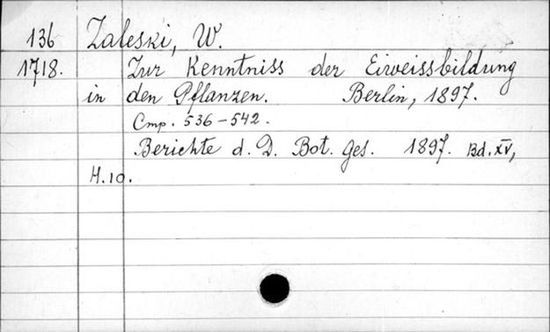 136 Zaleski, W.
1718. Zur Kenntniss der Eiweissbildung
in den Pflanzen. Berlin, 1897.
Cmp. 536-542.
Berichte d. D. Bot. Ges. 1897. Bd. XV,
H. 10.